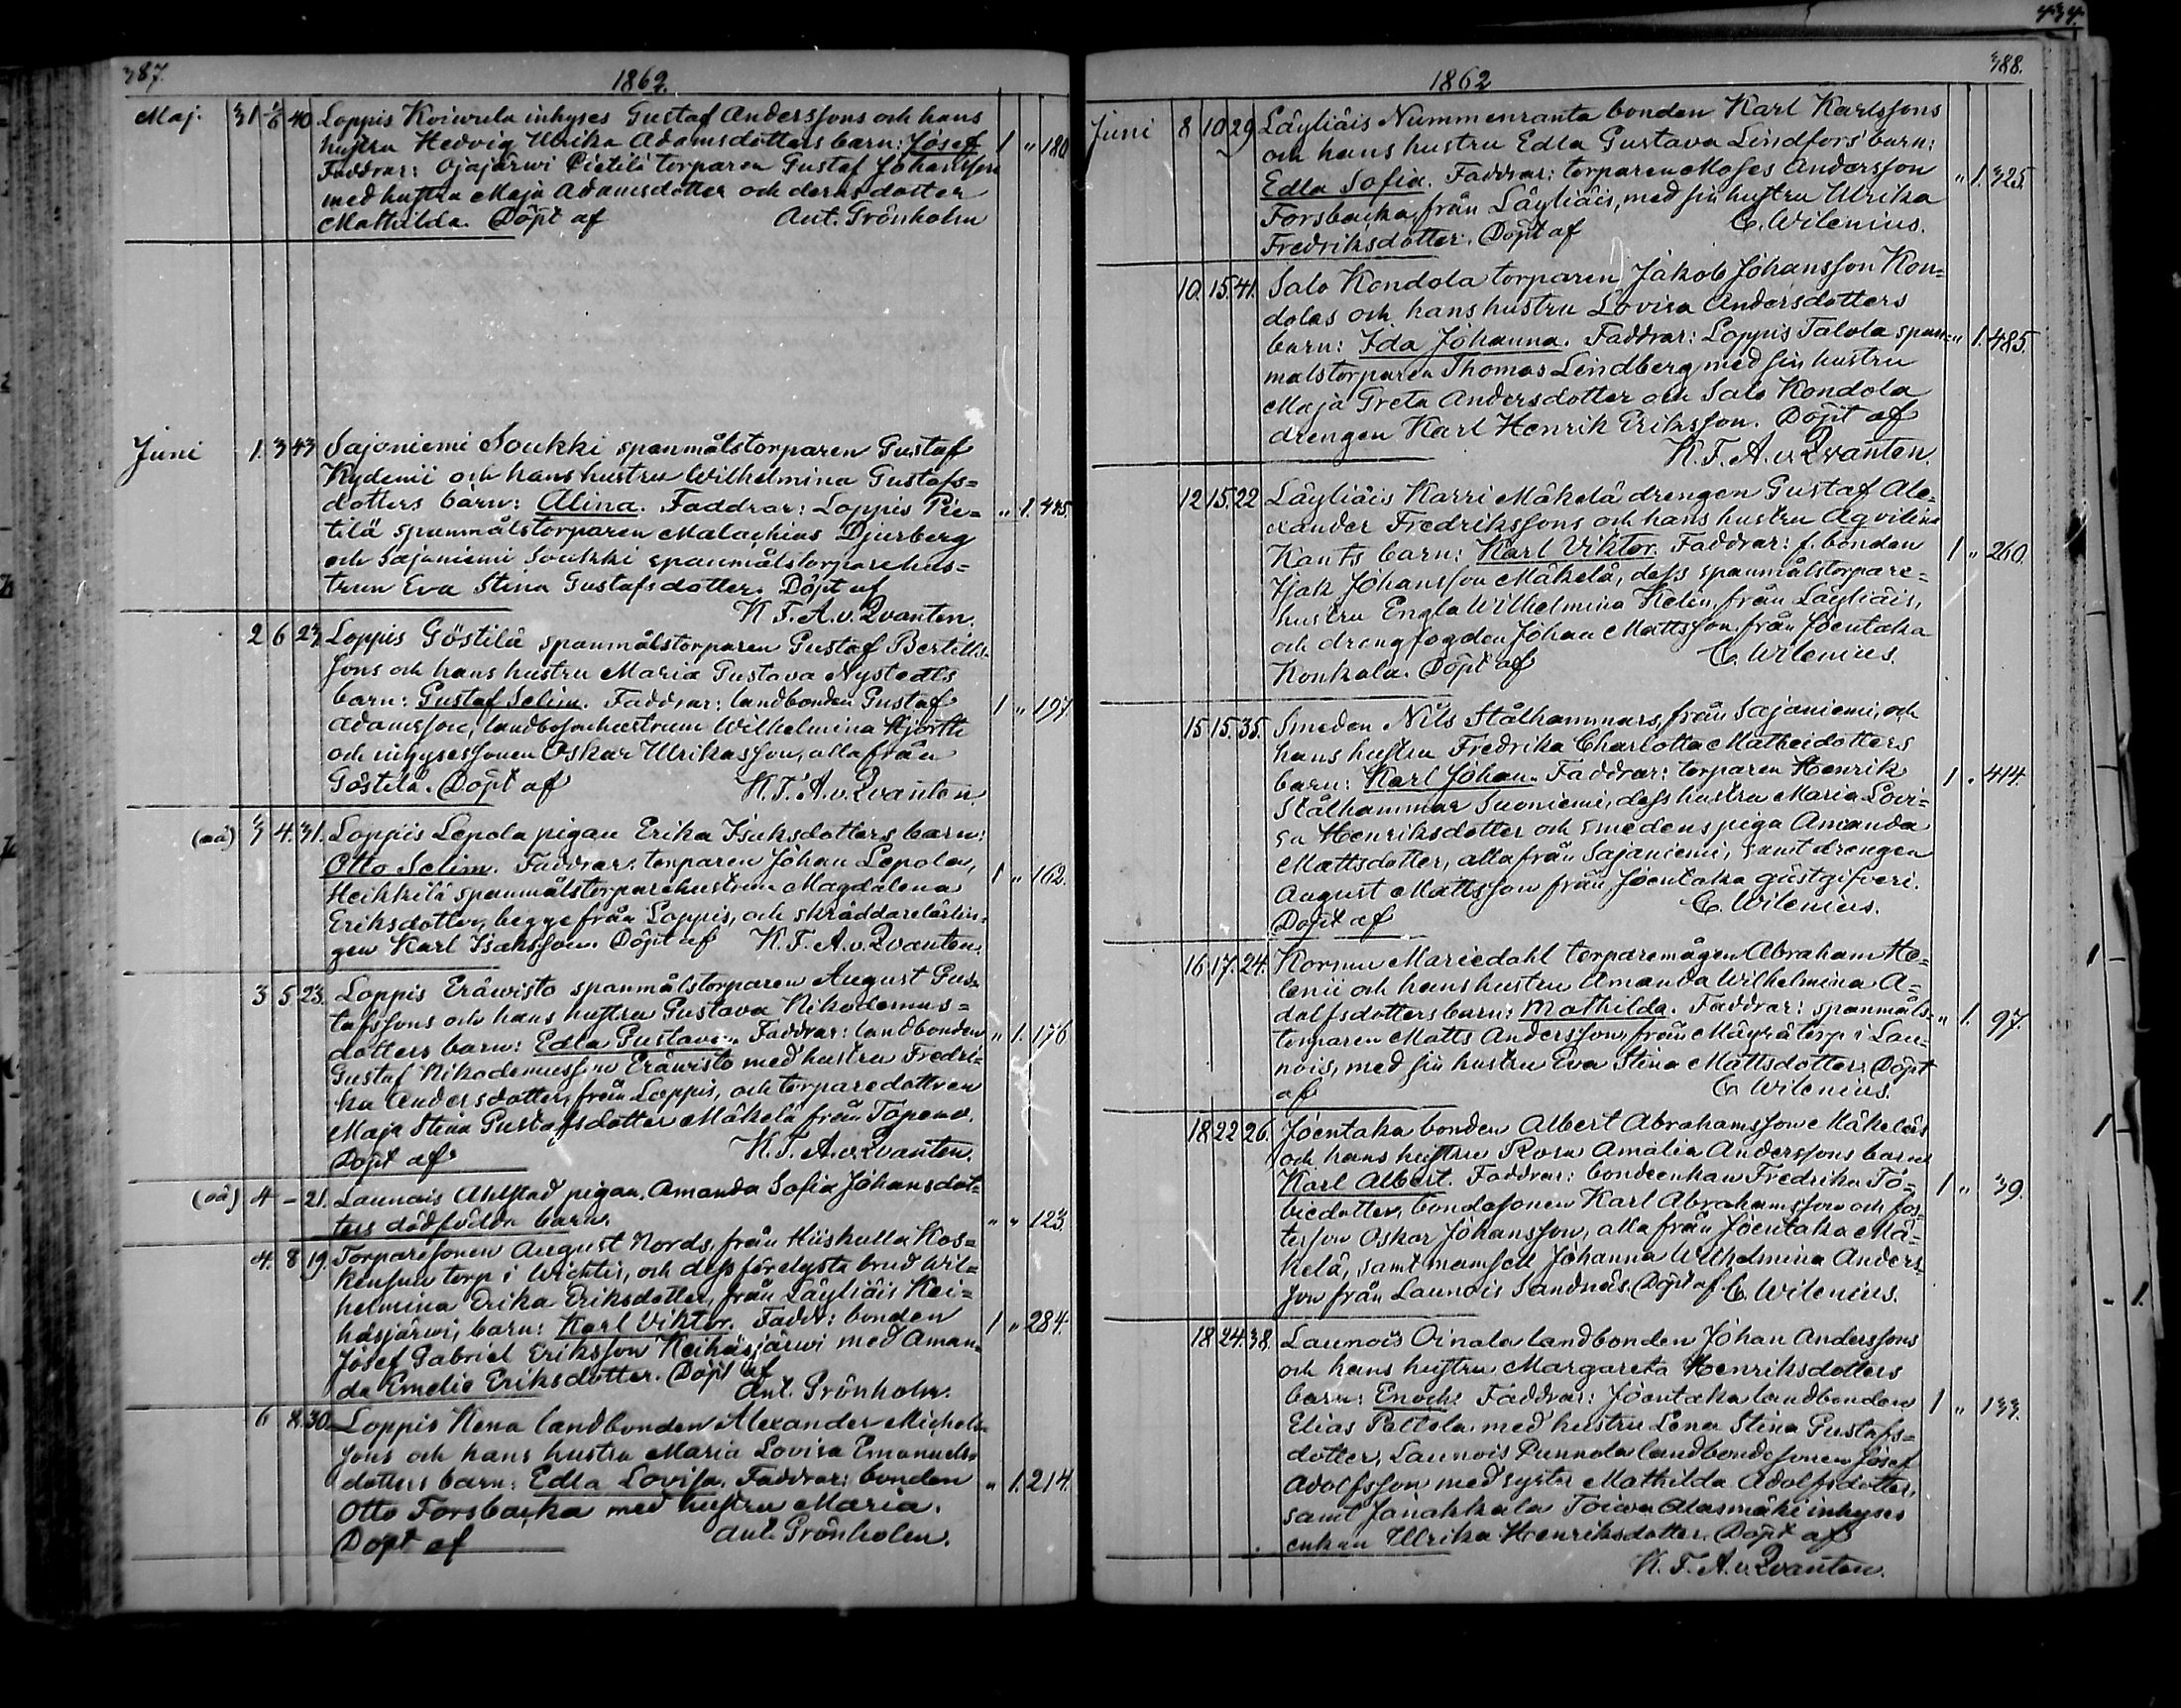 434.
387.
1862.
Maj. 31 1/6 40 Loppis Koiwula inhyses Gustaf Anderssons och hans
hustru Hedvig Ulrika Adamsdotters barn: Josef 1 " 180
Faddrar: Ojajärwi Pietilä torparen Gustaf Johansson
med hustru Maja Adamsdotter och deras dotter
Mathilda. Döpt af Ant. Grönholm
Juni 1. 3 43 Sajoniemi Soukki spanmålstorparen Gustaf
Kydenii och hans hustru Wilhelmina Gustafs=
dotters barn: Alina. Faddrar: Loppis Pie= " 1. 445.
tilä spanmålstorparen Malachias Djurberg
och Sajaniemi Soukki spanmålstorparehus=
trun Eva Stina Gustafsdotter. Döpt af
K. F. A. v. Qvanten.
2 6 23 Loppis Göstilä spanmålstorparen Gustaf Bertils=
sons och hans hustru Maria Gustava Nystedts
barn: Gustaf Selim. Faddrar: landbonden Gustaf 1 " 197.
Adamsson, landbosonhustrun Wilhelmina Hjorth
och inhysessonen Oskar Ulrikasson, alla från
Göstilä. Döpt af K. F. A. v. Qvanten.
(oä) 3 4. 31. Loppis Lepola pigan Erika Isaksdotters barn:
Otto Selim. Faddrar: torparen Johan Lepola, 1 " 162.
Heikkilä spanmålstorparehustrun Magdalena
Eriksdotter, begge från Loppis, och skräddarelärlin=
gen Karl Isaksson. Döpt af K. F. A. v. Qvanten.
3 5 23. Loppis Eräwisto spanmålstorparen August Gus=
tafssons och hans hustru Gustava Nikodemus=
dotters barn: Edla Gustava. Faddrar: landbonden " 1. 176
Gustaf Nikodemusson Eräwisto med hustru Fredri=
ka Andersdotter, från Loppis, och torparedottren
Maja Stina Gustafsdotter Mäkelä från Topeno.
Döpt af K. F. A. v. Qvanten.
(oä) 4 – 21. Launois Ahlstad pigan Amanda Sofia Johansdot=
ters dödfödda barn. " " 123
4. 8 19. Torparesonen August Nords, från Hiiskulla Kos=
kensuu torp i Wichtis, och dess förelysta brud Wil=
helmina Erika Eriksdotter, från Läyliäis Kei=
häsjärwi, barn: Karl Viktor. Faddr: bonden 1 " 284.
Josef Gabriel Eriksson Keihäsjärwi med Aman=
da Emelie Eriksdotter. Döpt af
Ant. Grönholm.
6 8. 30. Loppis Kena landbonden Alexander Michels=
sons och hans hustru Maria Lovisa Emanuels=
dotters barn: Edla Lovisa. Faddrar: bonden " 1. 214.
Otto Forsbacka med hustru Maria.
Döpt af Ant. Grönholm.
388.
1862
Juni 8 10 29 Läyliäis Nummenranta bonden Karl Karlssons
och hans hustru Edla Gustava Lindfors barn:
Edla Sofia. Faddrar: torparen Moses Andersson " 1. 325.
Forsbacka, från Läyliäis, med sin hustru Ulrika
Fredriksdotter. Döpt af C. Wilenius.
10. 15. 41. Salo Kondola torparen Jakob Johansson Kon=
dolas och hans hustru Lovisa Andersdotters
barn: Ida Johanna. Faddrar: Loppis Talola span= " 1. 485.
målstorparen Thomas Lindberg med sin hustru
Maja Greta Andersdotter och Salo Kondola
drengen Karl Henrik Eriksson. Döpt af
K. F. A. v. Qvanten.
12 15. 22 Läyliäis Karri Mäkelä drengen Gustaf Ale=
xander Fredrikssons och hans hustru Aqvilina
Kants barn: Karl Viktor. Faddrar: f. bonden 1 " 260.
Isak Johansson Mäkelä, dess spanmålstorpare=
hustru Engla Wilhelmina Kelin, från Läyliäis,
och drengfogden Johan Mattsson från Joentaka
Konkala. Döpt af C. Wilenius.
15 15. 35. Smeden Nils Stålhammars, från Sajaniemi, och
hans hustru Fredrika Charlotta Matheidotters
barn: Karl Johan. Faddrar: torparen Henrik 1 " 414.
Stålhammar Suoniemi, dess hustru Maria Lovi=
sa Henriksdotter och smedens piga Amanda
Mattsdotter, alla från Sajaniemi, samt drengen
August Mattsson från Joentaka gästgifveri.
Döpt af C. Wilenius.
16 17. 24. Kormu Mariedahl torparemågen Abraham He=
lenii och hans hustru Amanda Wilhelmina A=
dolfsdotters barn: Mathilda. Faddrar: spanmåls= " 1. 97.
torparen Matts Andersson, från Mäyrä torp i Lau=
nois, med sin hustru Eva Stina Mattsdotter. Döpt
af C. Wilenius.
18 22 26. Joentaka bonden Albert Abrahamsson Mäkeläs
och hans hustru Rosa Amalia Anderssons barn
Karl Albert. Faddrar: bondeenkan Fredrika To= 1 " 39.
biedotter, bondasonen Karl Abrahamsson och fos=
terson Oskar Johansson, alla från Joentaka Mä=
kelä, samt mamsell Johanna Wilhelmina Anders=
son från Launois Sandnäs. Döpt af C. Wilenius.
18 24. 38. Launois Oinala landbonden Johan Anderssons
och hans hustru Margareta Henriksdotters
barn: Enoch. Faddrar: Joentaka landbonden 1 " 133.
Elias Pattola med hustru Lena Stina Gustafs=
dotter, Launois Punnola landbondesonen Josef
Adolfsson med syster Mathilda Adolfsdotter,
samt Janakkala Toiwa Alasmäki inhyses
enkan Ulrika Henriksdotter. Döpt af
K. F. A. v. Qvanten.